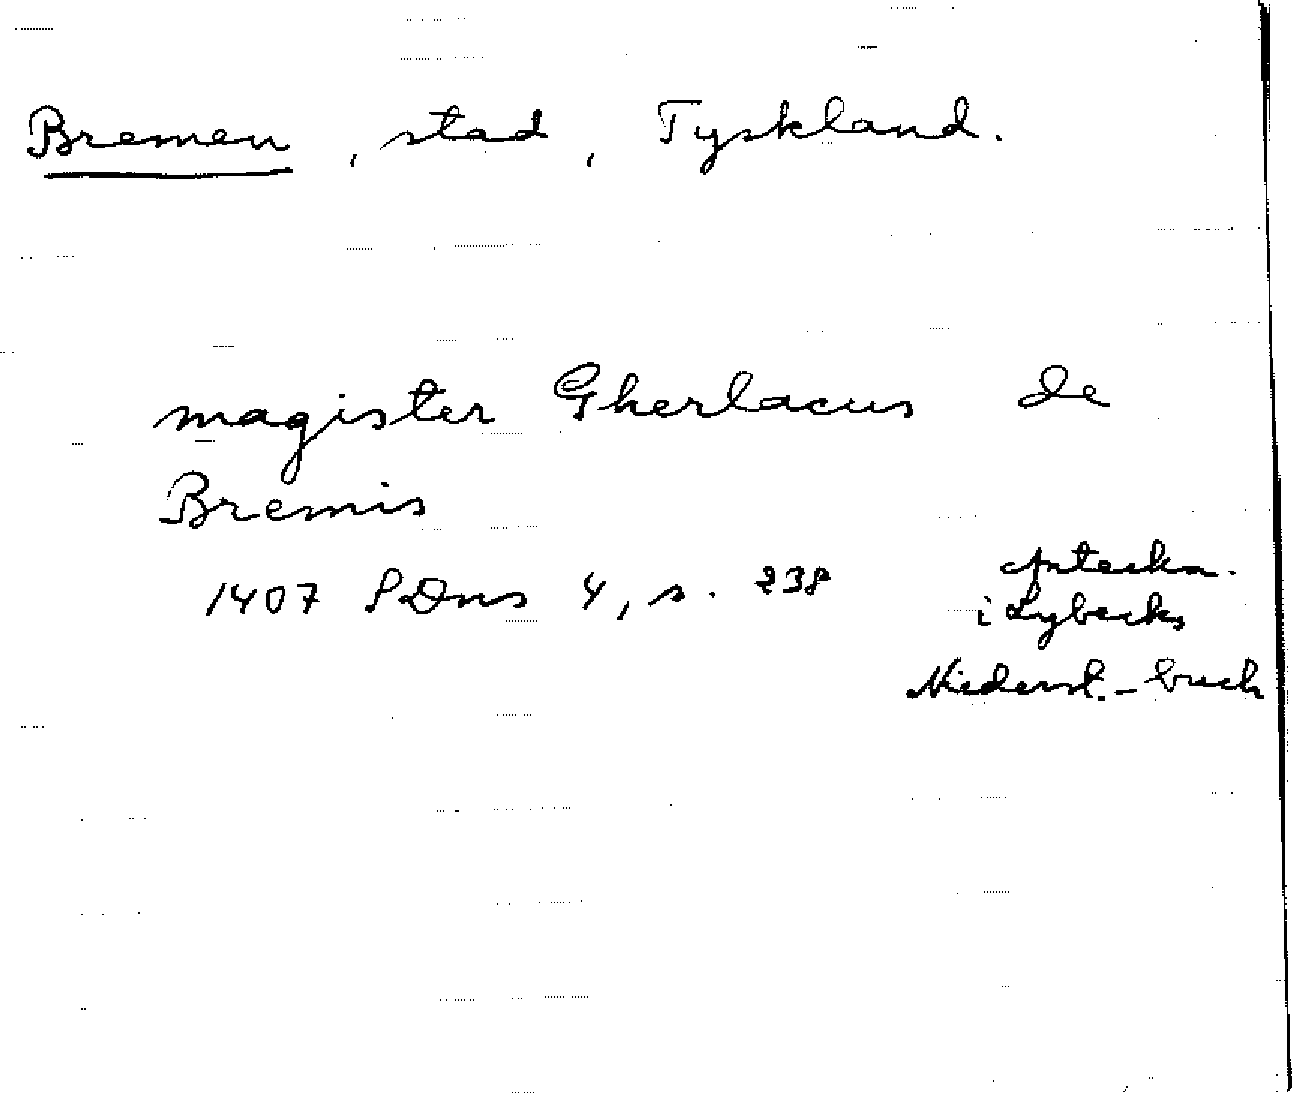 Bremen, stad, Tyskland.
magister Gherlacus de
Bremis
1407 SDns 4, s. 238
Anteckn.
i Lybecks
Niederst.-buch